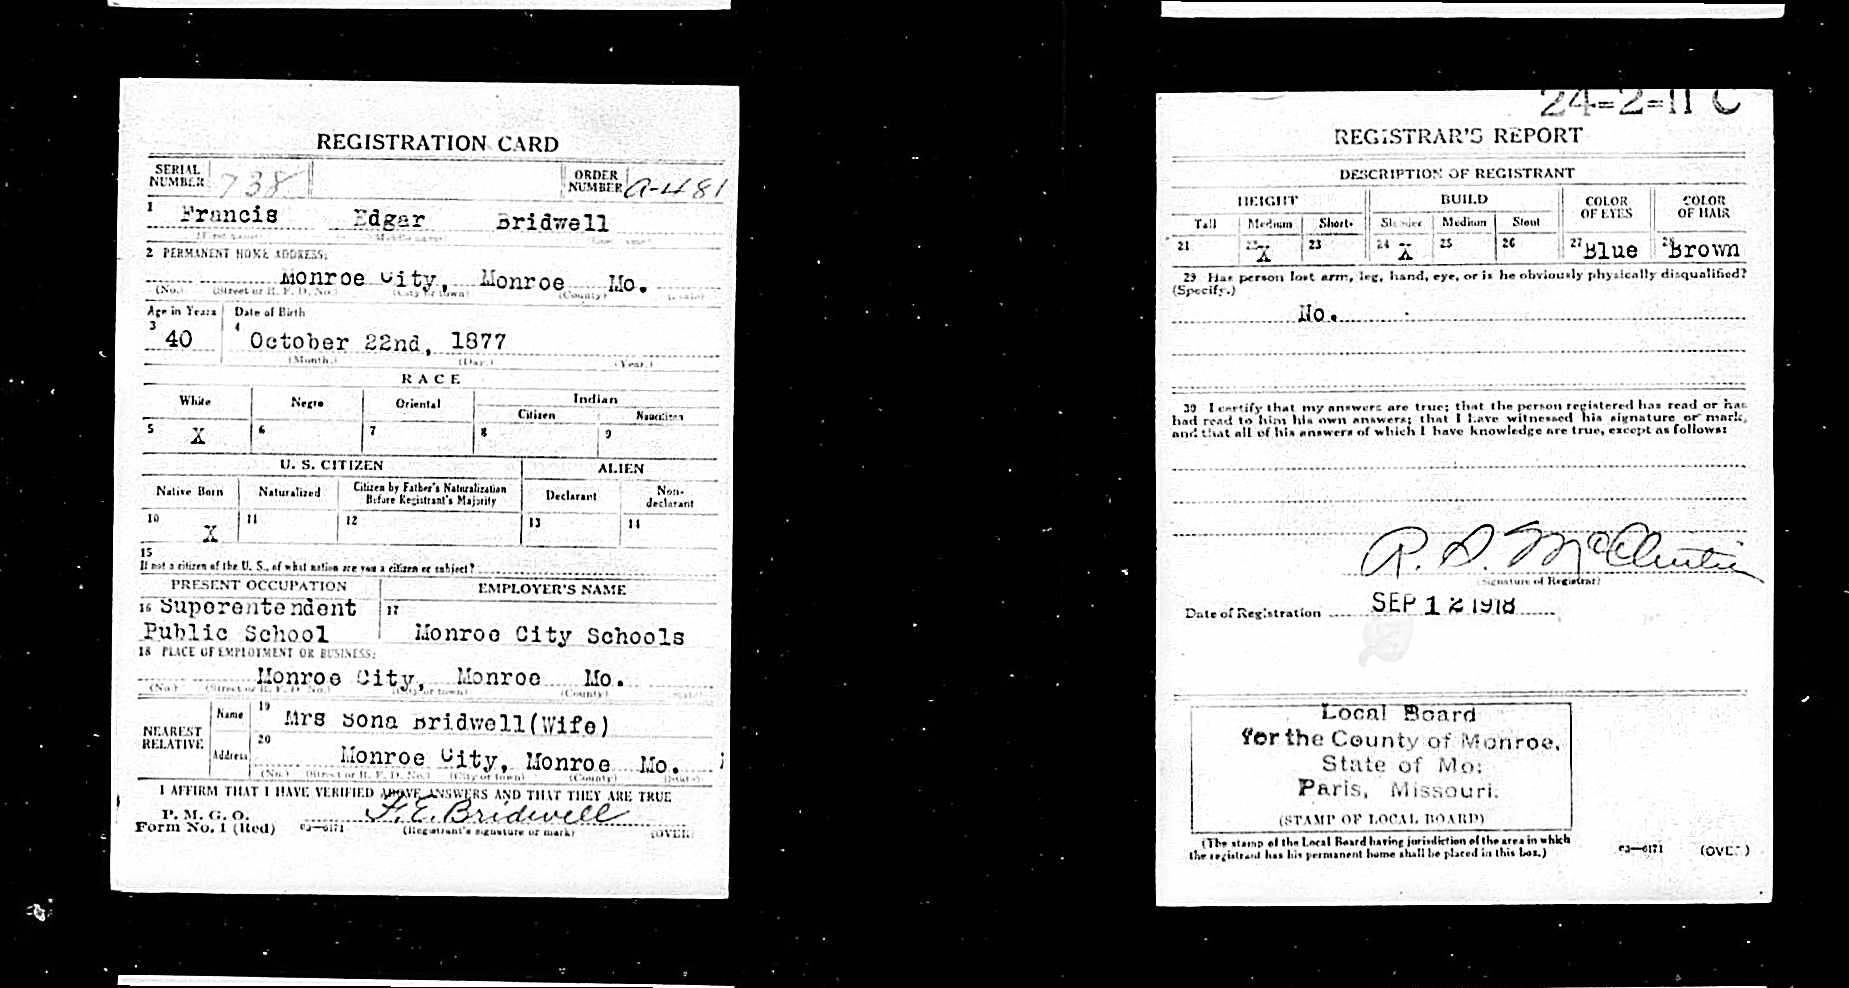 REGISTRATION CARD
SERIAL NUMBER 738 ORDER NUMBER A-481
1 Francis Edgar Bridwell
(First name) (Middle name) (Last name)
2 PERMANENT HOME ADDRESS:
Monroe City, Monroe Mo.
(No.) (Street or R. F. D. No.) (City or town) (County) (State)
Age in Years Date of Birth
3 40 4 October 22nd, 1877
(Month.) (Day.) (Year.)
RACE
White Negro Oriental Indian
Citizen Noncitizen
5 X 6 7 8 9
U. S. CITIZEN ALIEN
Native Born Naturalized Citizen by Father's Naturalization Before Registrant's Majority Declarant Non-declarant
10 X 11 12 13 14
15
If not a citizen of the U. S., of what nation are you a citizen or subject?
PRESENT OCCUPATION EMPLOYER'S NAME
16 Superentendent 17
Public School Monroe City Schools
18 PLACE OF EMPLOYMENT OR BUSINESS:
Monroe City, Monroe Mo.
(No.) (Street or R. F. D. No.) (City or town) (County) (State)
NEAREST RELATIVE Name 19 Mrs Sona Bridwell(Wife)
Address 20 Monroe City, Monroe Mo.
(No.) (Street or R. F. D. No.) (City or town) (County) (State)
I AFFIRM THAT I HAVE VERIFIED ABOVE ANSWERS AND THAT THEY ARE TRUE
P. M. G. O.
Form No. 1 (Red) 03—6171 F. E. Bridwell
(Registrant's signature or mark) (OVER)
24=2=11 C
REGISTRAR'S REPORT
DESCRIPTION OF REGISTRANT
HEIGHT BUILD COLOR OF EYES COLOR OF HAIR
Tall Medium Short Slender Medium Stout
21 22 X 23 24 X 25 26 27 Blue 28 Brown
29 Has person lost arm, leg, hand, eye, or is he obviously physically disqualified?
(Specify.)
No.
30 I certify that my answers are true; that the person registered has read or has
had read to him his own answers; that I have witnessed his signature or mark,
and that all of his answers of which I have knowledge are true, except as follows:
(Signature of Registrar)
Date of Registration SEP 12 1918
Local Board
for the County of Monroe,
State of Mo:
Paris, Missouri.
(STAMP OF LOCAL BOARD)
(The stamp of the Local Board having jurisdiction of the area in which
the registrant has his permanent home shall be placed in this box.)
03—6171 (OVER)